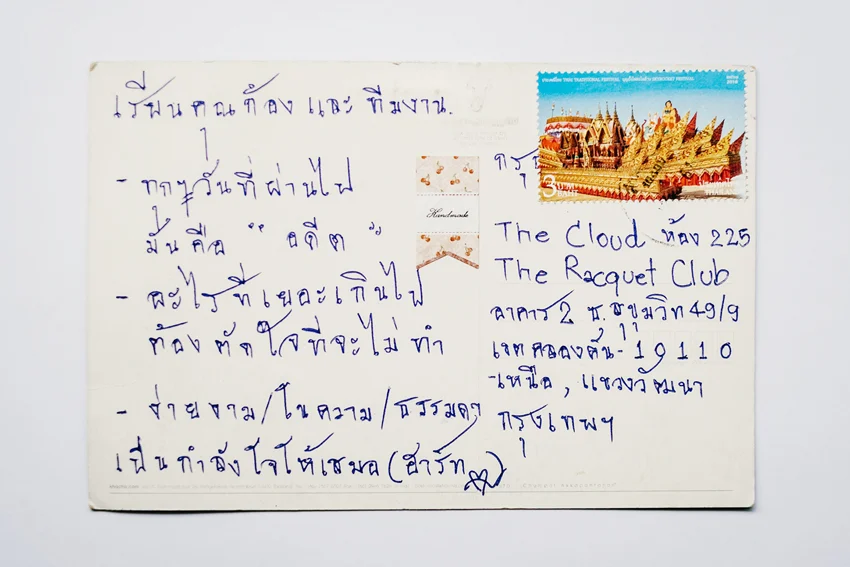 เรียนคุณก้อง และ ทีมงาน.
- ทุกๆวันที่ผ่านไป
มันคือ " อดีต "
- อะไรที่เยอะเกินไป
ต้องตัดใจที่จะไม่ ทำ
- ง่ายงาม/ในความ/ธรรมดา
เป็นกำลังใจให้เสมอ (ฮาร์ท
Handmade
THAI TRADITIONAL FESTIVAL
3
กรุ
The Cloud ห้อง 225
The Racquet Club
อาคาร 2 ซ.สุขุมวิท 49/9
เขตคลองตัน - 10110
-เหนือ, แขวงวัฒนา
กรุงเทพฯ